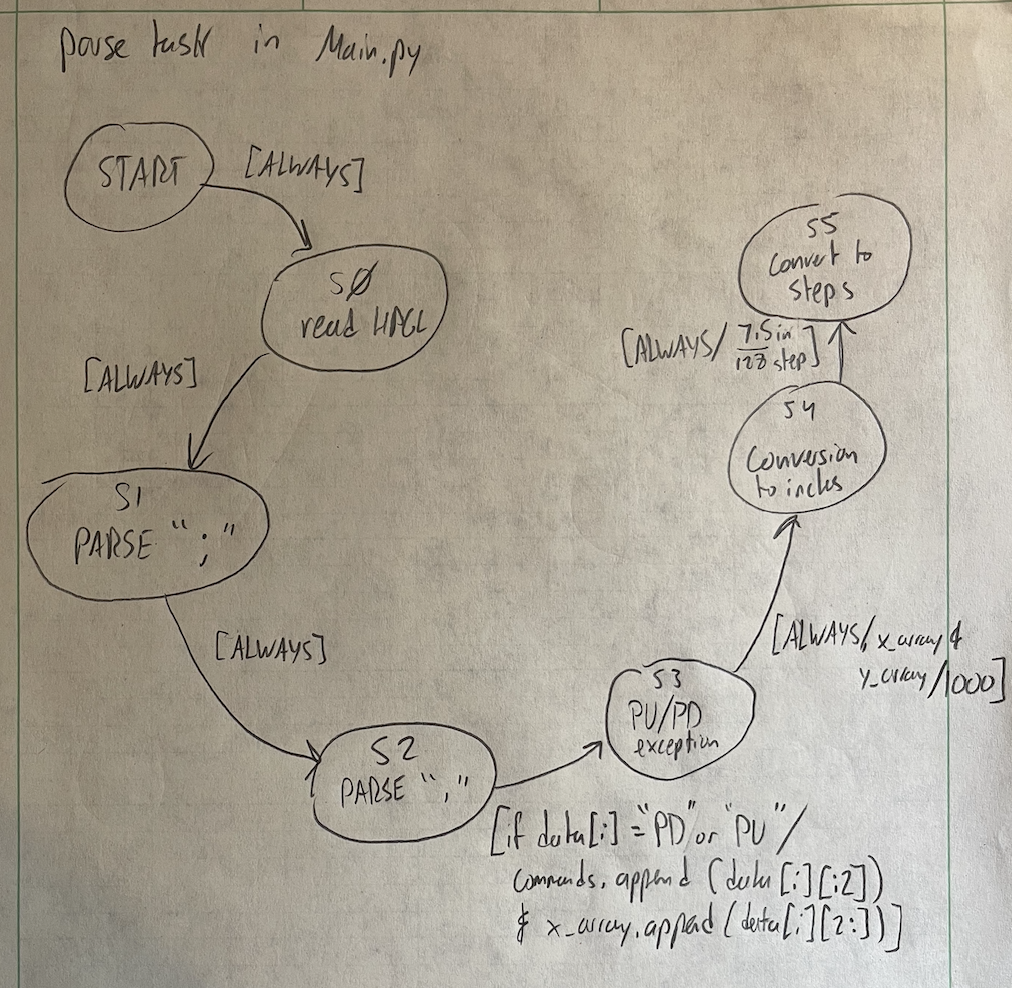 parse task in Main.py
START
[ALWAYS]
S0
read HPGL
[ALWAYS]
S1
PARSE ";"
[ALWAYS]
S2
PARSE ","
[if data[i] = "PD" or "PU" /
commands.append (data[i][:2])
& x_array.append (data[i][2:])]
S3
PU/PD
exception
[ALWAYS/ x_array &
y_array/1000]
S4
Conversion
to inches
[ALWAYS/ 7.5 in
128 step]
S5
Convert to
steps